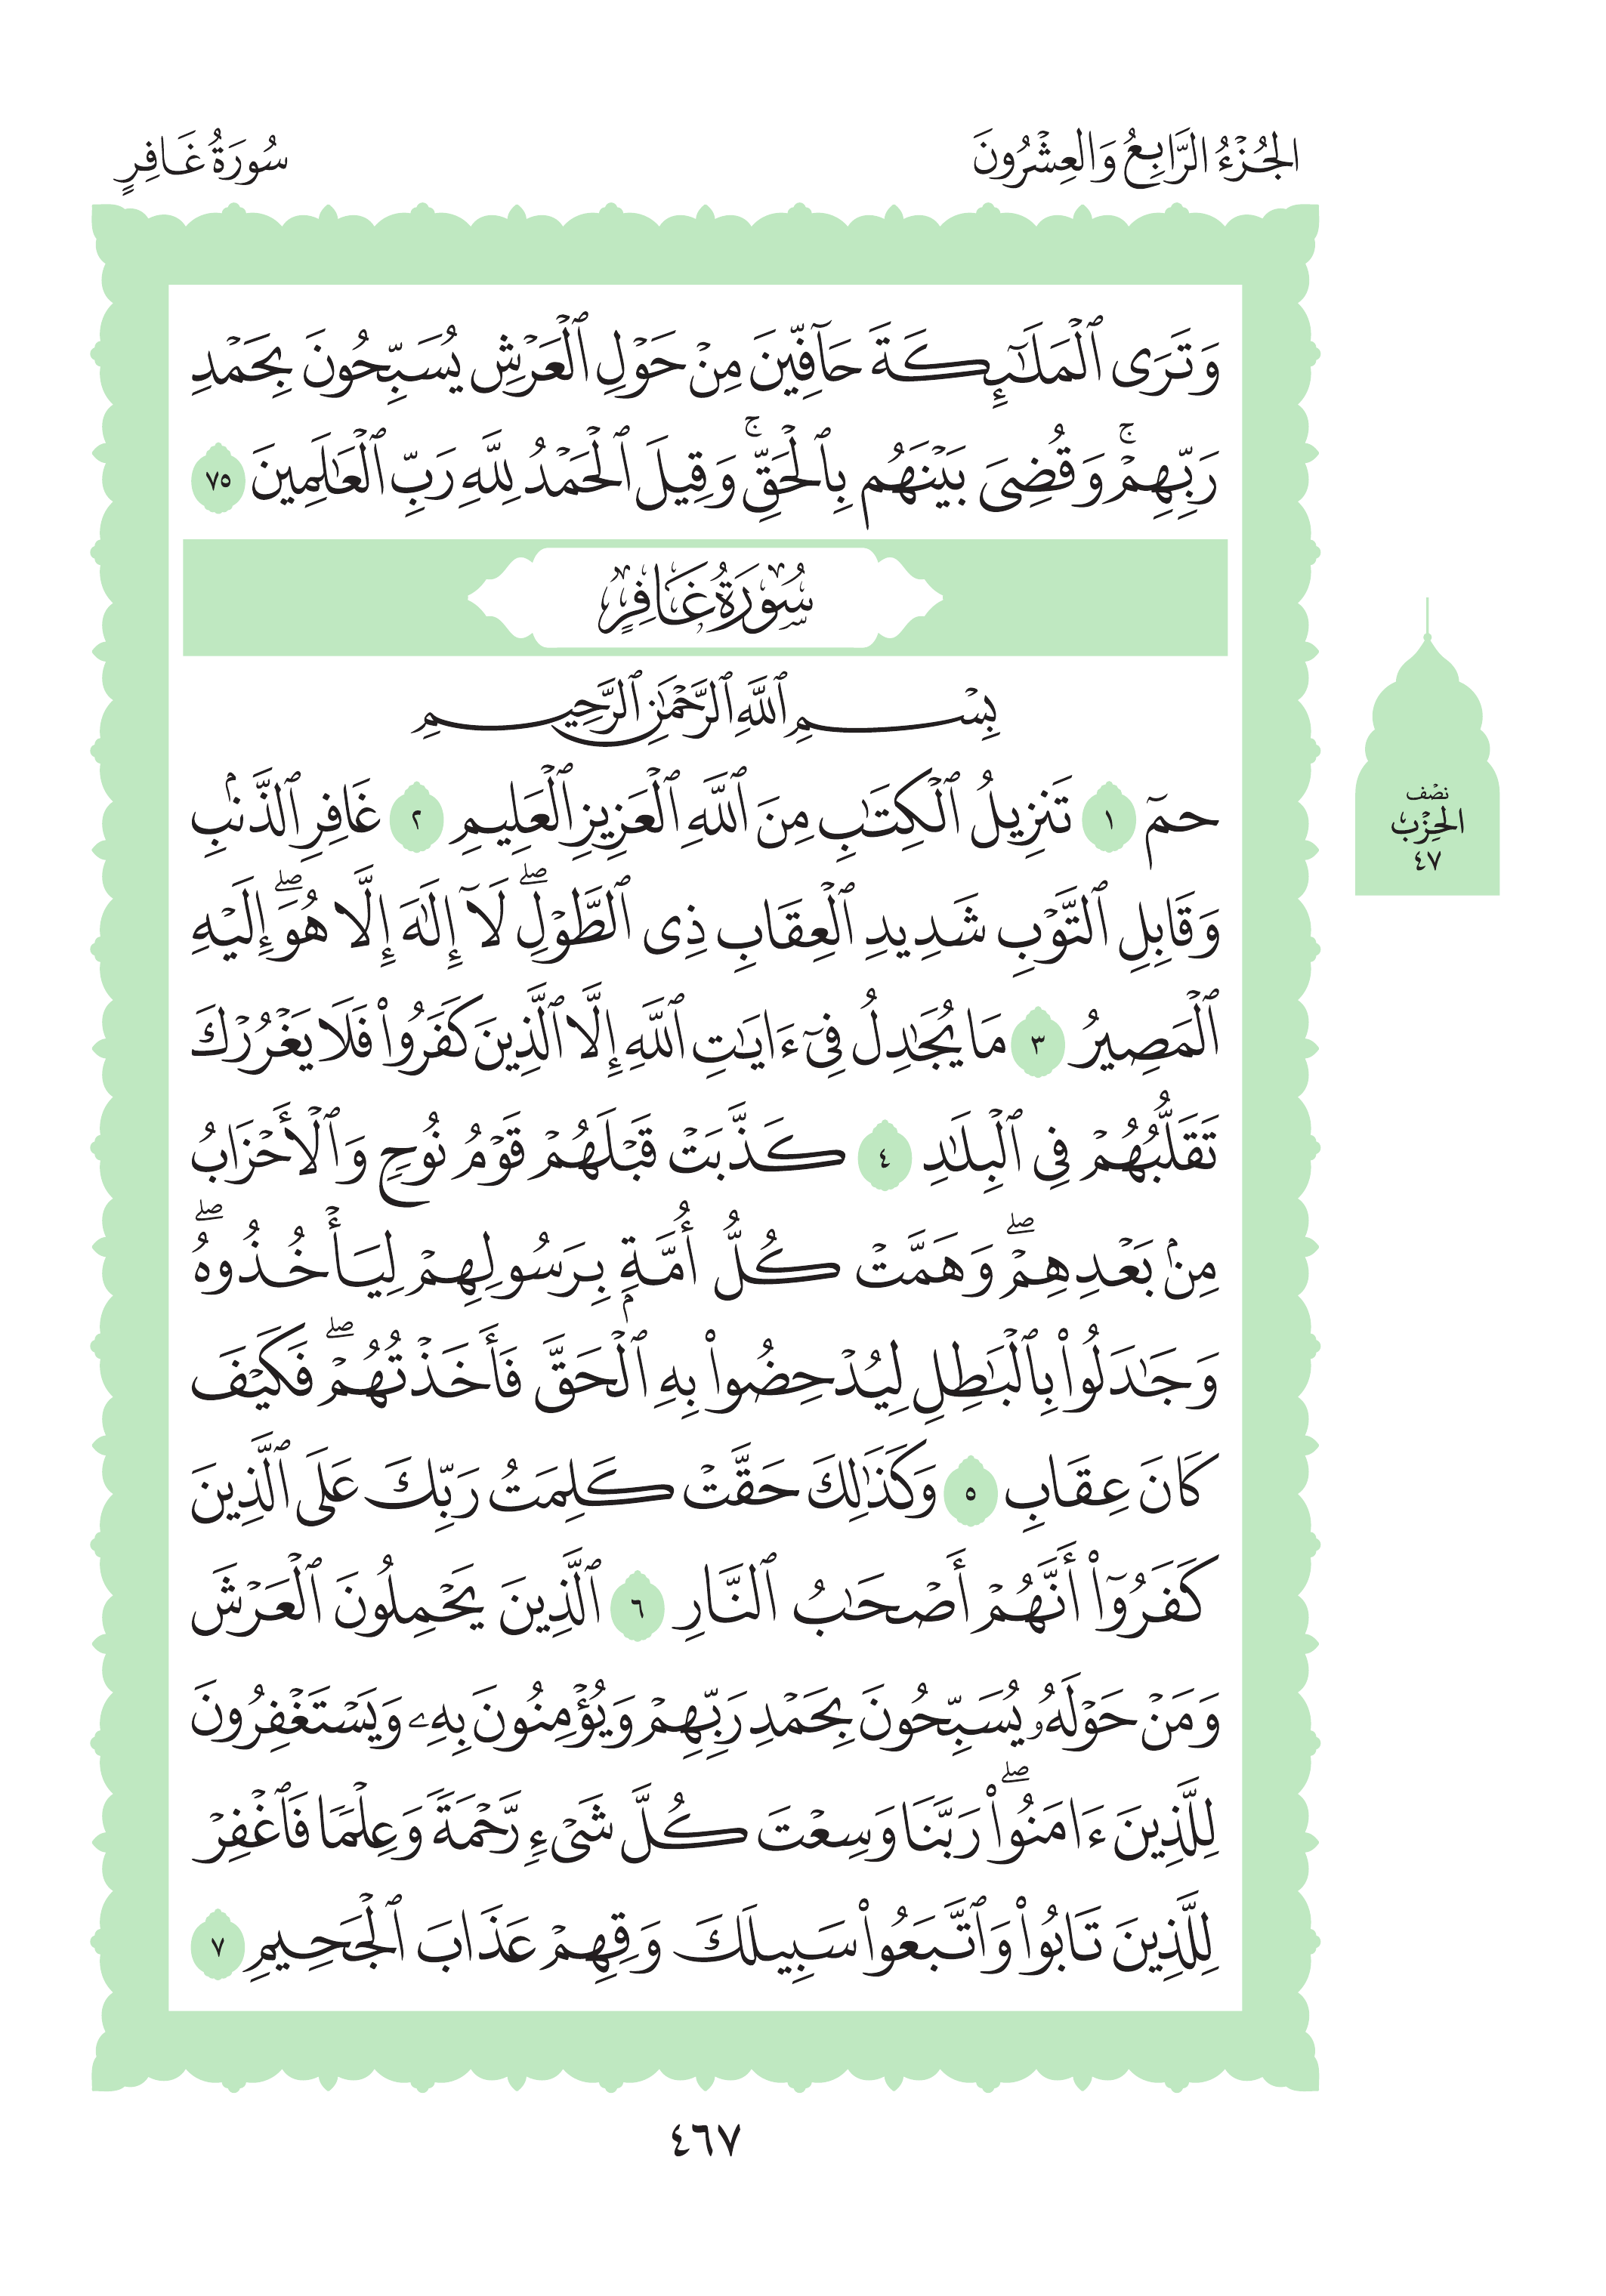 الجُزْءُ الرَّابِعُ وَالعِشْرُونَ
سُورَةُ غَافِرٍ
وَتَرَى ٱلْمَلَٰٓئِكَةَ حَآفِّينَ مِنْ حَوْلِ ٱلْعَرْشِ يُسَبِّحُونَ بِحَمْدِ
رَبِّهِمْۚ وَقُضِىَ بَيْنَهُم بِٱلْحَقِّۚ وَقِيلَ ٱلْحَمْدُ لِلَّهِ رَبِّ ٱلْعَٰلَمِينَ ٧٥
سُورَةُ غَافِرٍ
بِسْمِ ٱللَّهِ ٱلرَّحْمَٰنِ ٱلرَّحِيمِ
حمٓ ١ تَنزِيلُ ٱلْكِتَٰبِ مِنَ ٱللَّهِ ٱلْعَزِيزِ ٱلْعَلِيمِ ٢ غَافِرِ ٱلذَّنۢبِ
وَقَابِلِ ٱلتَّوْبِ شَدِيدِ ٱلْعِقَابِ ذِى ٱلطَّوْلِۖ لَآ إِلَٰهَ إِلَّا هُوَۖ إِلَيْهِ
ٱلْمَصِيرُ ٣ مَا يُجَٰدِلُ فِىٓ ءَايَٰتِ ٱللَّهِ إِلَّا ٱلَّذِينَ كَفَرُوا۟ فَلَا يَغْرُرْكَ
تَقَلُّبُهُمْ فِى ٱلْبِلَٰدِ ٤ كَذَّبَتْ قَبْلَهُمْ قَوْمُ نُوحٍ وَٱلْأَحْزَابُ
مِنۢ بَعْدِهِمْۖ وَهَمَّتْ كُلُّ أُمَّةٍۭ بِرَسُولِهِمْ لِيَأْخُذُوهُۖ
وَجَٰدَلُوا۟ بِٱلْبَٰطِلِ لِيُدْحِضُوا۟ بِهِ ٱلْحَقَّ فَأَخَذْتُهُمْۖ فَكَيْفَ
كَانَ عِقَابِ ٥ وَكَذَٰلِكَ حَقَّتْ كَلِمَتُ رَبِّكَ عَلَى ٱلَّذِينَ
كَفَرُوٓا۟ أَنَّهُمْ أَصْحَٰبُ ٱلنَّارِ ٦ ٱلَّذِينَ يَحْمِلُونَ ٱلْعَرْشَ
وَمَنْ حَوْلَهُۥ يُسَبِّحُونَ بِحَمْدِ رَبِّهِمْ وَيُؤْمِنُونَ بِهِۦ وَيَسْتَغْفِرُونَ
لِلَّذِينَ ءَامَنُوا۟ۖ رَبَّنَا وَسِعْتَ كُلَّ شَىْءٍ رَّحْمَةً وَعِلْمًا فَٱغْفِرْ
لِلَّذِينَ تَابُوا۟ وَٱتَّبَعُوا۟ سَبِيلَكَ وَقِهِمْ عَذَابَ ٱلْجَحِيمِ ٧
نصْف
الحِزْب
٤٧
٤٦٧